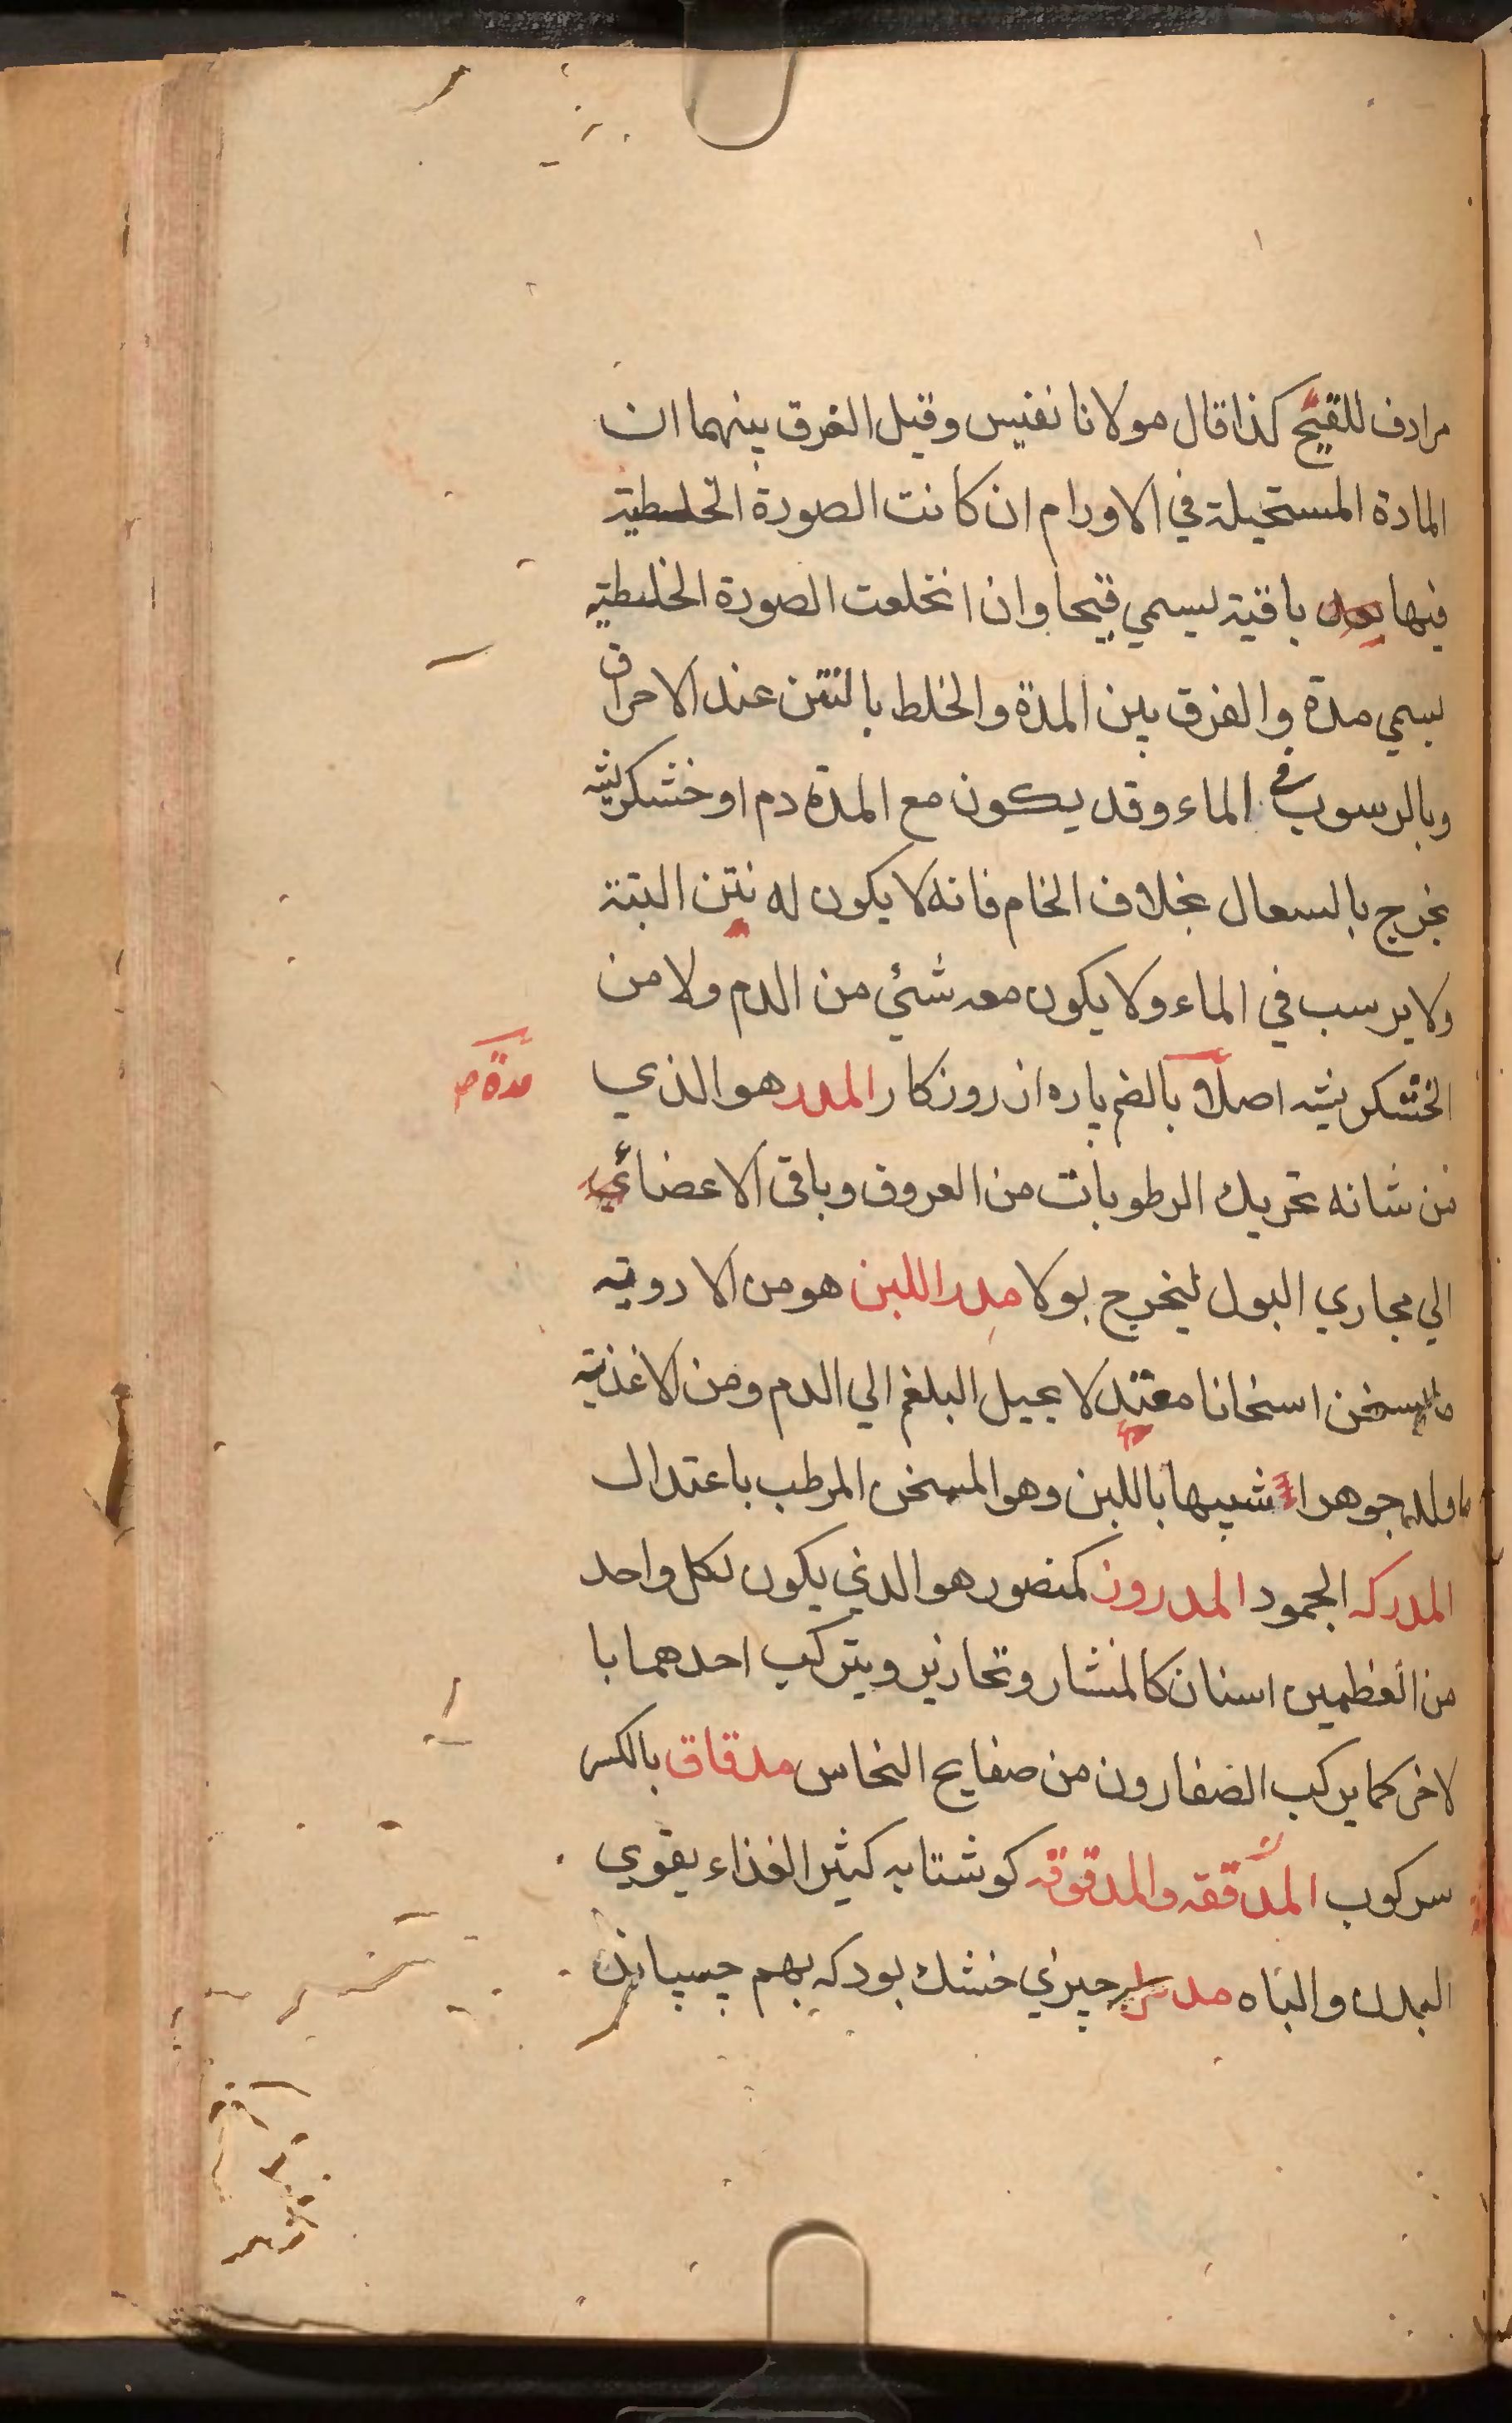 مرادف للقيح كذا قال مولانا نفيس وقيل الفرق بينهما ان
المادة المستحيلة في الاورام ان كانت الصورة الخلطية
فيها باقية يسمي قيحا وان انخلعت الصورة الخلطية
يسمي مدة والفرق بين المدة والخلط بالنتن عند الاحراق
وبالرسوب في الماء وقد يكون مع المدة دم او خشكريشه
يخرج بالسعال بخلاف الخام فانه لا يكون له نتن البتة
ولا يرسب في الماء ولا يكون معه شئي من الدم ولا من
الخشكريشه اصلا و بالضم پاره از روزكار المدر هو الذي
مدة صح
من شانه تحريك الرطوبات من العروق وباقي الاعضائي
الي مجاري البول ليخرج بولا مدر اللبن هو من الادويه
ما يسخن اسخانا معتدلا يحيل البلغم الي الدم ومن الاغذية
ما ولد جوهرا شبيها باللبن وهو المسخن المرطب باعتدال
المدركه الجمود المدرون كمنصور هو الذي يكون لكل واحد
من العظمين اسنان كالمنشار وتحازير ويتركب احدهما با
لاخر كما يركب الصفارون من صفايح النحاس مدقاق بالكسر
سركوب المدققه والمدقوقه كوشتابه كثير الغذاء يقوي
البدن والباه چيزي خشك بود كه بهم چسپانند